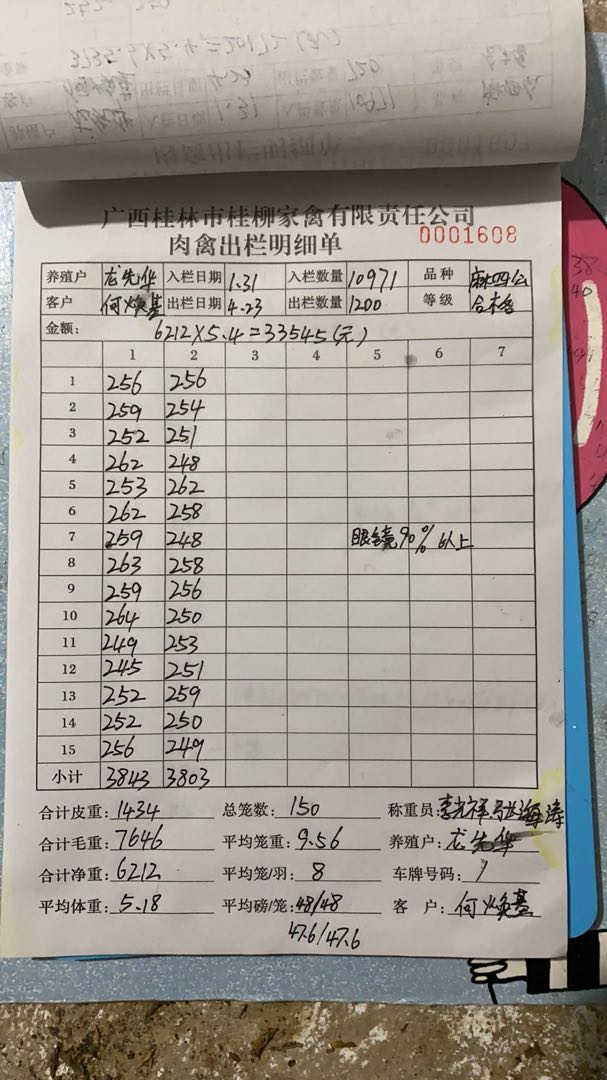 3735.4×5.4=20172(元)
广西桂林市桂柳家禽有限责任公司
肉禽出栏明细单 0001608
养殖户 龙先华 入栏日期 1.31 入栏数量 10971 品种 麻四公
客户 何焕基 出栏日期 4.23 出栏数量 1200 等级 合格
金额: 6212×5.4=33545(元)
1 2 3 4 5 6 7
1 256 256
2 259 254
3 252 251
4 262 248
5 253 262
6 262 258
7 259 248 眼镜90%以上
8 263 258
9 259 256
10 264 250
11 249 253
12 245 251
13 252 259
14 252 250
15 256 249
小计 3843 3803
合计皮重: 1434 总笼数: 150 称重员: 李光祥 海涛
合计毛重: 7646 平均笼重: 9.56 养殖户: 龙先华
合计净重: 6212 平均笼/羽: 8 车牌号码: /
平均体重: 5.18 平均磅/笼: 48/48 客 户: 何焕基
47.6/47.6